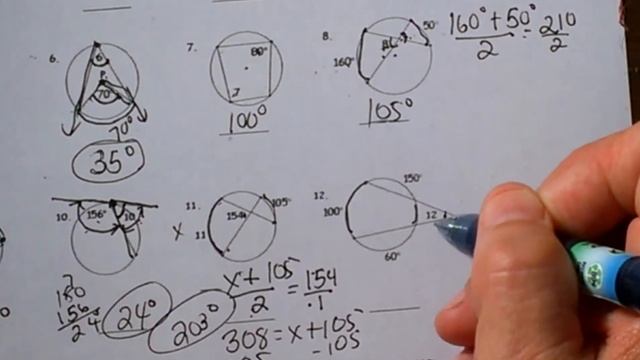 6.
6
P
70°
70°
35°
7.
80°
7
100°
8.
50°
160°
8
105°
160° + 50° = 210
2 2
10.
156°
10
7
180
156
24
24°
x 11.
105°
154°
11
203°
x + 105 = 154
2 1
308 = x + 105
-105
12.
150°
100°
12
60°